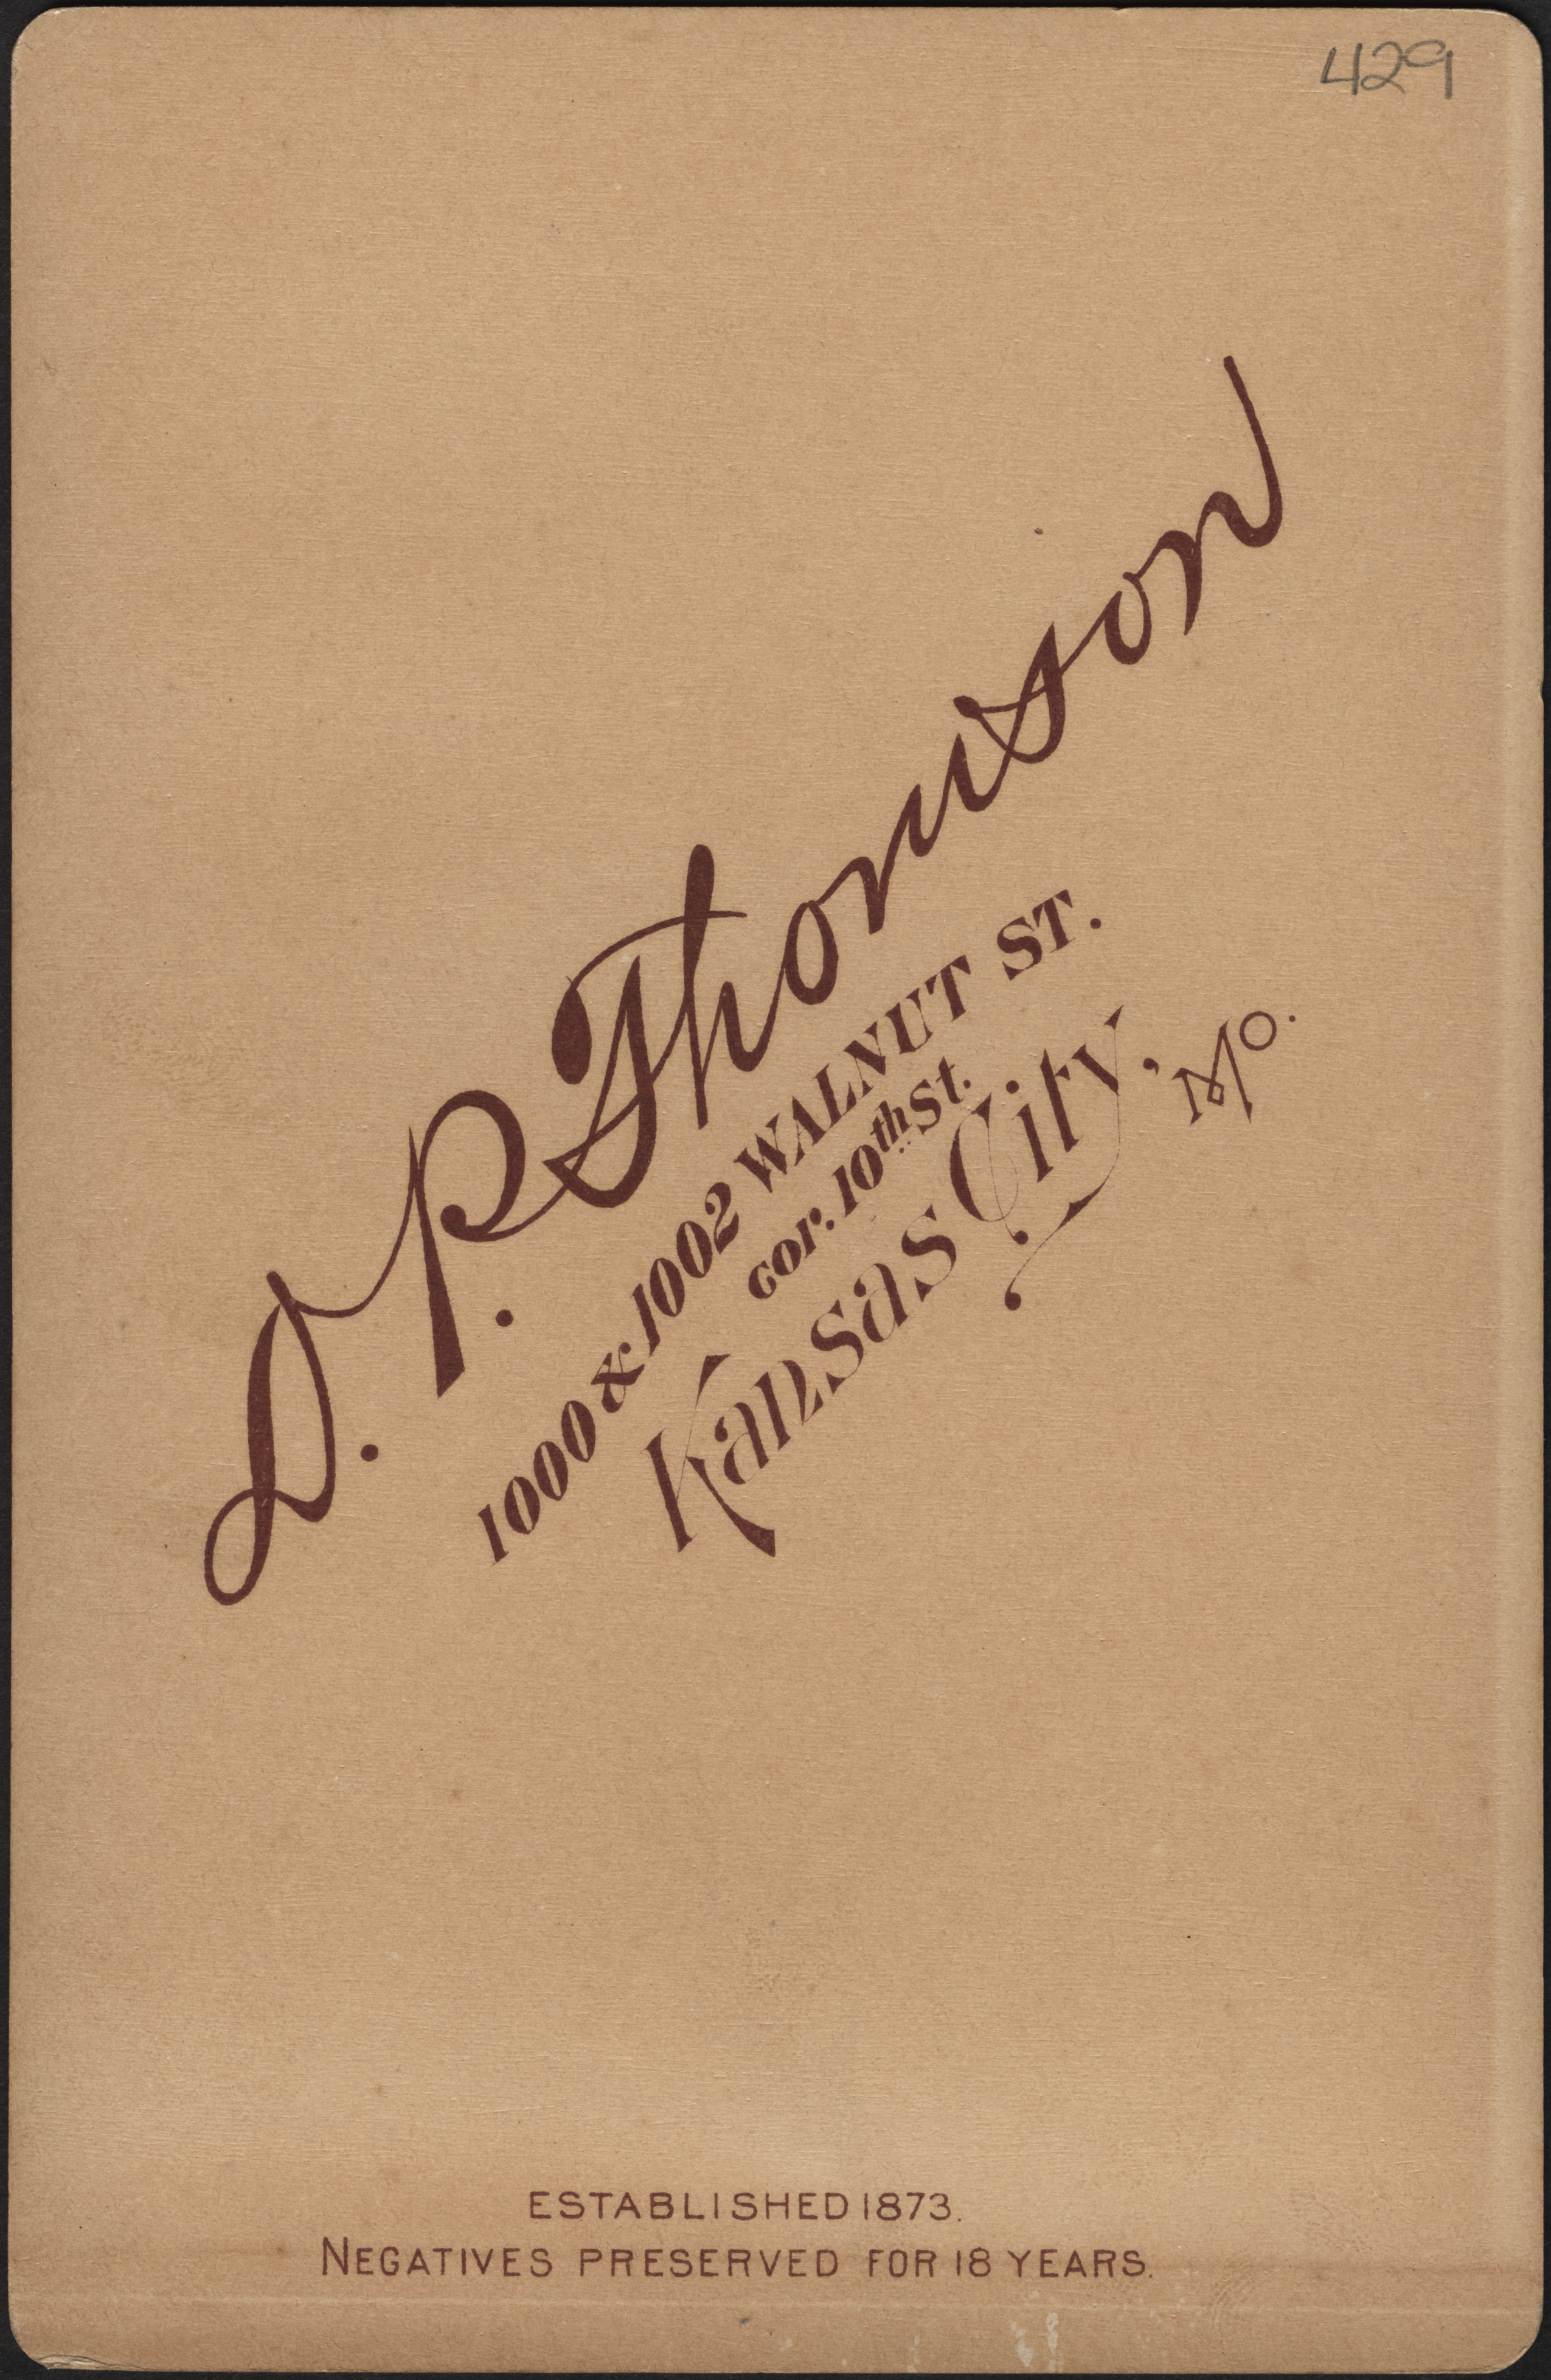 429
D. P. Thomson
1000 & 1002 WALNUT ST.
cor. 10th St.
Kansas City, Mo.
ESTABLISHED 1873.
NEGATIVES PRESERVED FOR 18 YEARS.